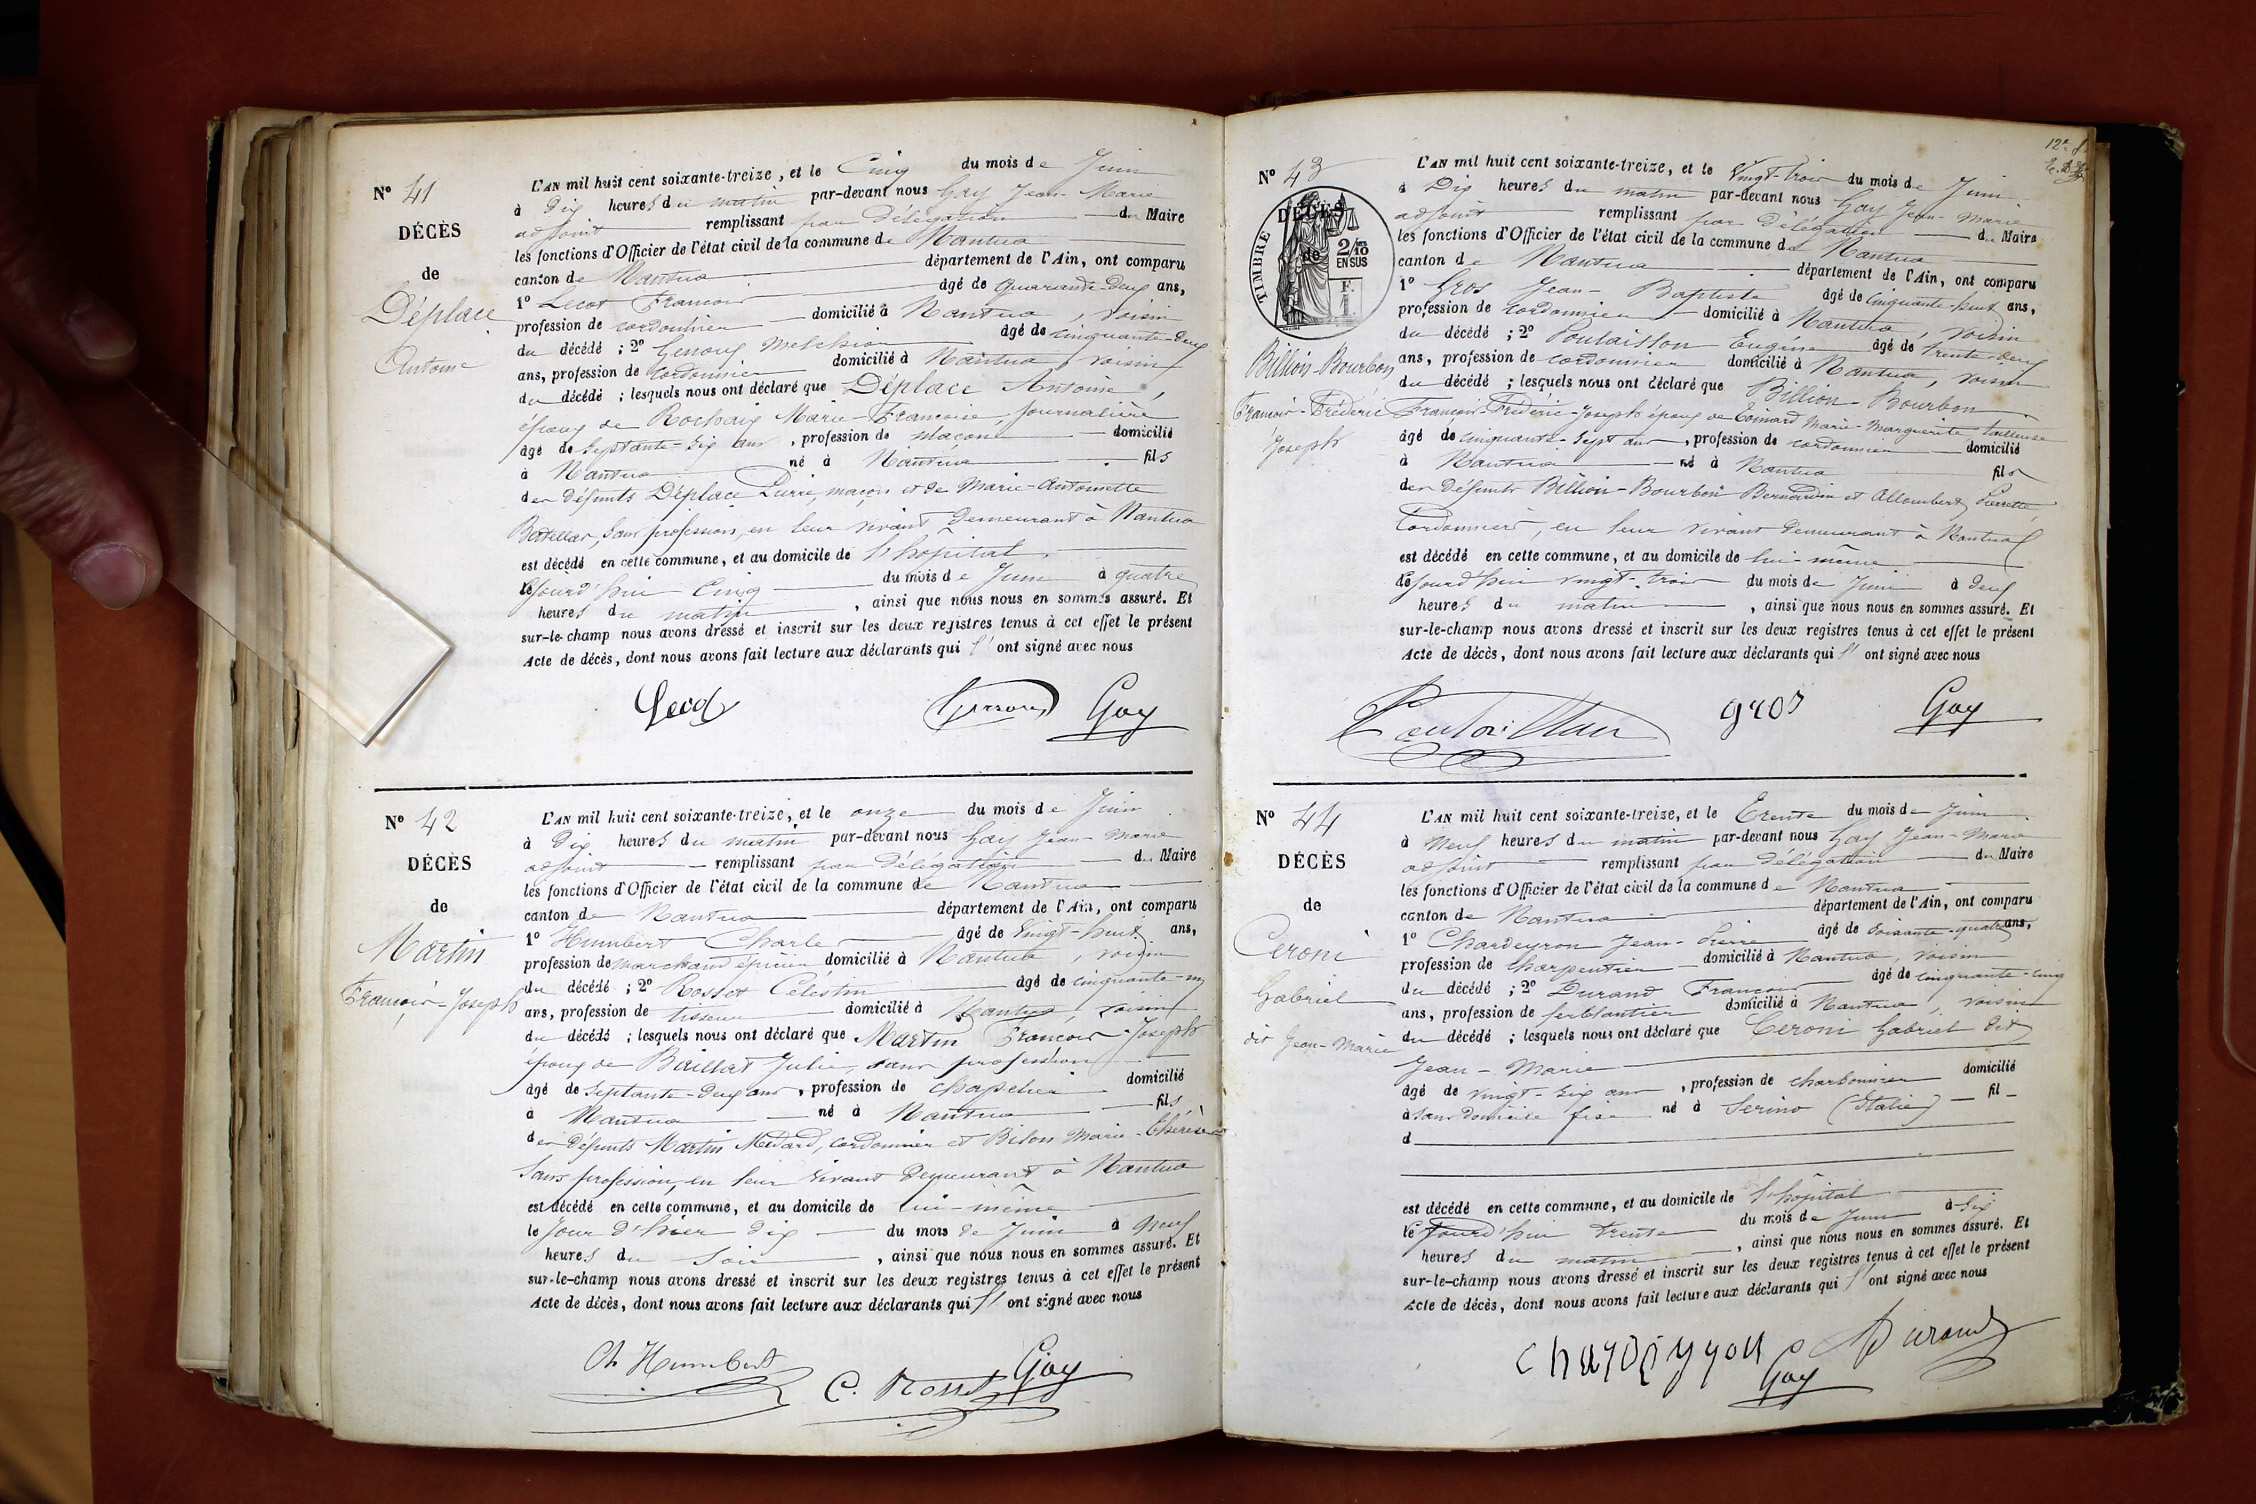 N° 41
DÉCÈS
de
Déplace
Antoine
L'AN mil huit cent soixante-treize, et le Cinq du mois de Juin
à Dix heures du matin par-devant nous Gay Jean-Marie
adjoint remplissant par délégation du Maire
les fonctions d'Officier de l'état civil de la commune de Nantua
canton de Nantua département de l'Ain, ont comparu
1° Lecot François âgé de quarante-deux ans,
profession de cordonnier domicilié à Nantua, voisin
du décédé ; 2° Genoux Melchior âgé de cinquante-deux
ans, profession de cordonnier domicilié à Nantua, voisin
du décédé ; lesquels nous ont déclaré que Déplace Antoine,
époux de Rochaix Marie-Françoise, journalière
âgé de septante-six ans, profession de maçon domicilié
à Nantua né à Nantua fils
des défunts Déplace Pierre, maçon et de Marie-Antoinette
sans profession, en leur vivant demeurant à Nantua
est décédé en cette commune, et au domicile de l'hôpital
lejourd'hui Cinq du mois de Juin à quatre
heures du matin, ainsi que nous nous en sommes assuré. Et
sur-le-champ nous avons dressé et inscrit sur les deux registres tenus à cet effet le présent
Acte de décès, dont nous avons fait lecture aux déclarants qui l' ont signé avec nous
Lecot Genoux Gay
N° 42
DÉCÈS
de
Martin
François-Joseph
L'AN mil huit cent soixante-treize, et le onze du mois de Juin
à Dix heures du matin par-devant nous Gay Jean-Marie
adjoint remplissant par délégation du Maire
les fonctions d'Officier de l'état civil de la commune de Nantua
canton de Nantua département de l'Ain, ont comparu
1° Humbert Charle âgé de vingt-huit ans,
profession de marchand épicier domicilié à Nantua, voisin
du décédé ; 2° Rosset Célestin âgé de cinquante-un
ans, profession de tisseur domicilié à Nantua, voisin
du décédé ; lesquels nous ont déclaré que Martin François-Joseph
époux de Baillat Julie, sans profession
âgé de septante-deux ans, profession de chapelier domicilié
à Nantua né à Nantua fils
des défunts Martin Médard, cordonnier et Marie-Thérèse
sans profession, en leur vivant demeurant à Nantua
est décédé en cette commune, et au domicile de lui-même
le jour d'hier dix du mois de Juin à neuf
heures du soir, ainsi que nous nous en sommes assuré. Et
sur-le-champ nous avons dressé et inscrit sur les deux registres tenus à cet effet le présent
Acte de décès, dont nous avons fait lecture aux déclarants qui l' ont signé avec nous
Ch Humbert C. Rosset Gay
N° 43
DÉCÈS
de
TIMBRE
2/10
EN SUS
Billion-Bourbon
François-Fréderic
Joseph
L'AN mil huit cent soixante-treize, et le Vingt-trois du mois de Juin
à Dix heures du matin par-devant nous Gay Jean-Marie
adjoint remplissant par délégation du Maire
les fonctions d'Officier de l'état civil de la commune de Nantua
canton de Nantua département de l'Ain, ont comparu
1° Gros Jean-Baptiste âgé de cinquante-huit ans,
profession de cordonnier domicilié à Nantua, voisin
du décédé ; 2° Eugène âgé de trente-deux
ans, profession de cordonnier domicilié à Nantua, voisin
du décédé ; lesquels nous ont déclaré que Billion-Bourbon
François-Fréderic-Joseph époux de Marie-Marguerite tailleuse
âgé de cinquante-sept ans, profession de cordonnier domicilié
à Nantua né à Nantua fils
des défunts Billion-Bourbon Bernardin et Allombert Pierrette
Cordonniers, en leur vivant demeurant à Nantua
est décédé en cette commune, et au domicile de lui-même
lejourd'hui vingt-trois du mois de Juin à deux
heures du matin, ainsi que nous nous en sommes assuré. Et
sur-le-champ nous avons dressé et inscrit sur les deux registres tenus à cet effet le présent
Acte de décès, dont nous avons fait lecture aux déclarants qui l' ont signé avec nous
gros Gay
N° 44
DÉCÈS
de
Ceroni
Gabriel
dit Jean-Marie
L'AN mil huit cent soixante-treize, et le Trente du mois de Juin
à Neuf heures du matin par-devant nous Gay Jean-Marie
adjoint remplissant par délégation du Maire
les fonctions d'Officier de l'état civil de la commune de Nantua
canton de Nantua département de l'Ain, ont comparu
1° Chardeyron Jean-Pierre âgé de soixante-quatre ans,
profession de charpentier domicilié à Nantua, voisin
du décédé ; 2° Durand François âgé de cinquante-cinq
ans, profession de ferblantier domicilié à Nantua, voisin
du décédé ; lesquels nous ont déclaré que Ceroni Gabriel dit
Jean-Marie
âgé de vingt-six ans, profession de charbonnier domicilié
à sans domicile fixe né à Serino (Italie) fil
d
est décédé en cette commune, et au domicile de l'hôpital
lejourd'hui trente du mois de Juin à six
heures du matin, ainsi que nous nous en sommes assuré. Et
sur-le-champ nous avons dressé et inscrit sur les deux registres tenus à cet effet le présent
Acte de décès, dont nous avons fait lecture aux déclarants qui l' ont signé avec nous
Durand
Gay